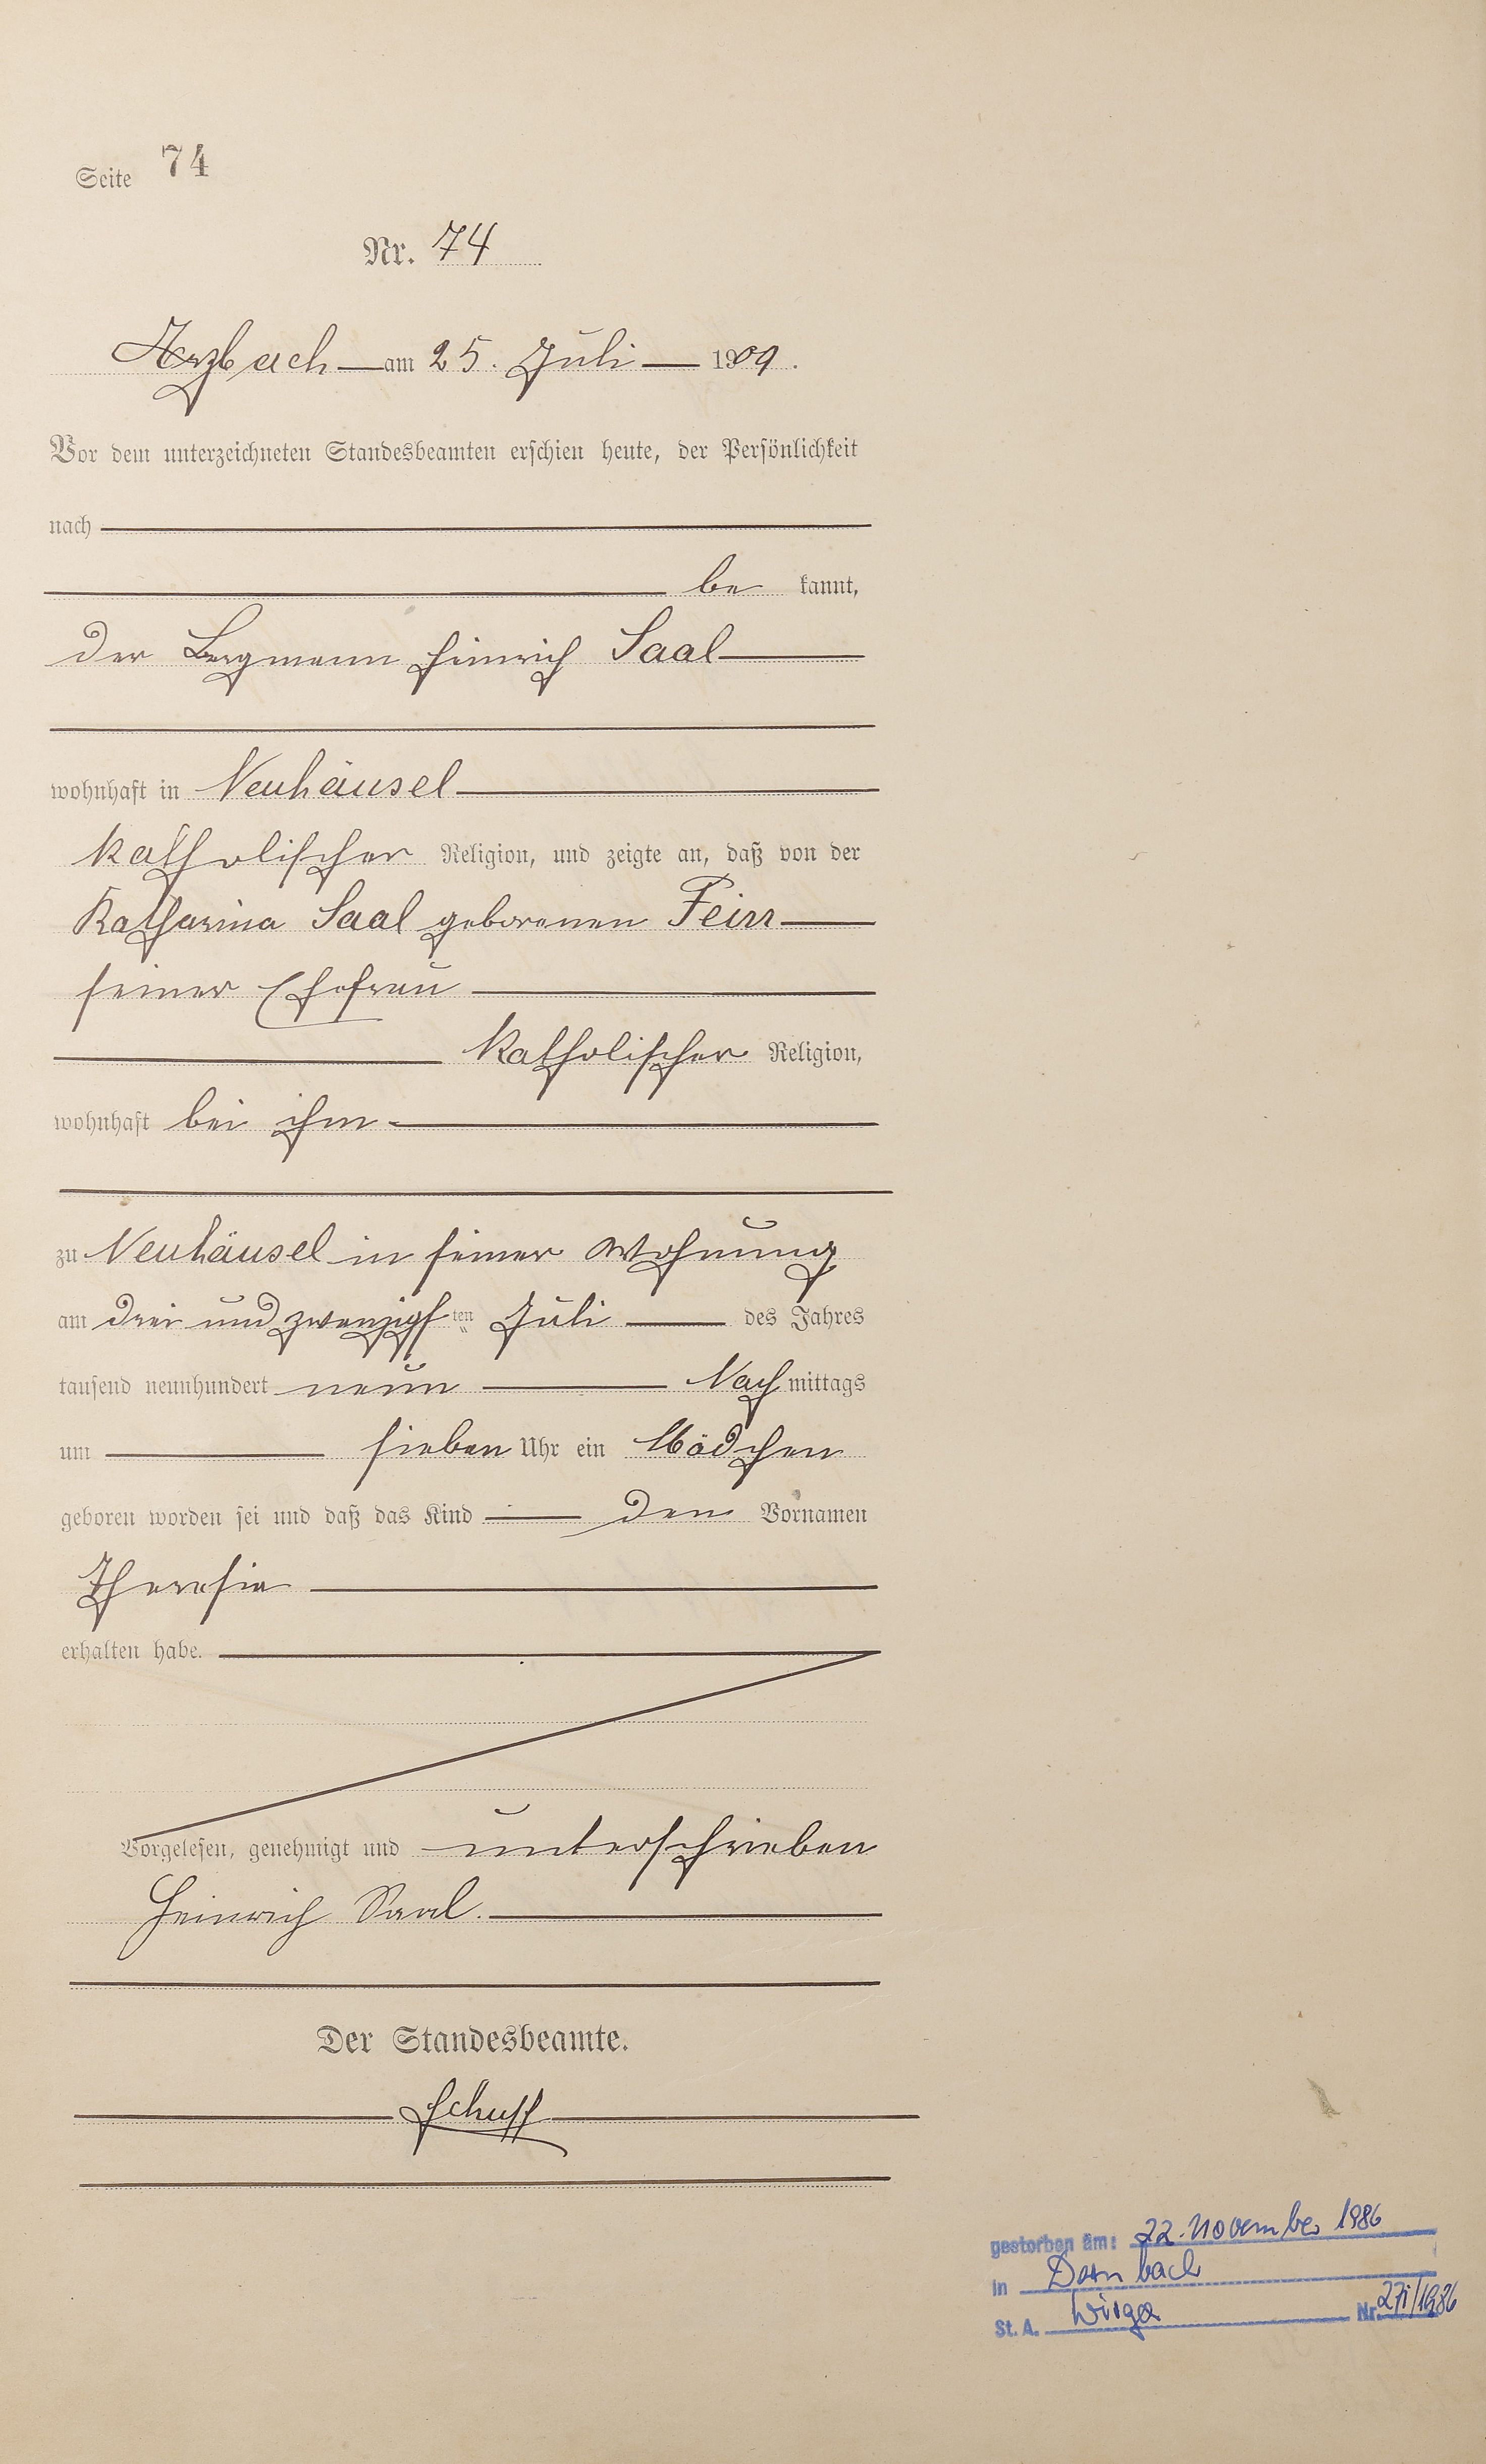 Seite 74
Nr. 74
Arzbach am 25. Juli 1909.
Vor dem unterzeichneten Standesbeamten erschien heute, der Persönlichkeit
nach
be kannt,
der Bergmann Heinrich Saal
wohnhaft in Neuhäusel
katholischer Religion, und zeigte an, daß von der
Katharina Saal geborenen
seiner Ehefrau
katholischer Religion,
wohnhaft bei ihm
zu Neuhäusel in seiner Wohnung
am drei und zwanzigsten Juli des Jahres
tausend neunhundert neun Nachmittags
um sieben Uhr ein Mädchen
geboren worden sei und daß das Kind den Vornamen
Theresia
erhalten habe.
Vorgelesen, genehmigt und unterschrieben
Heinrich Saal.
Der Standesbeamte.
gestorben am: 22. November 1986
in Dernbach
St. A. Wirges Nr. 271/1986